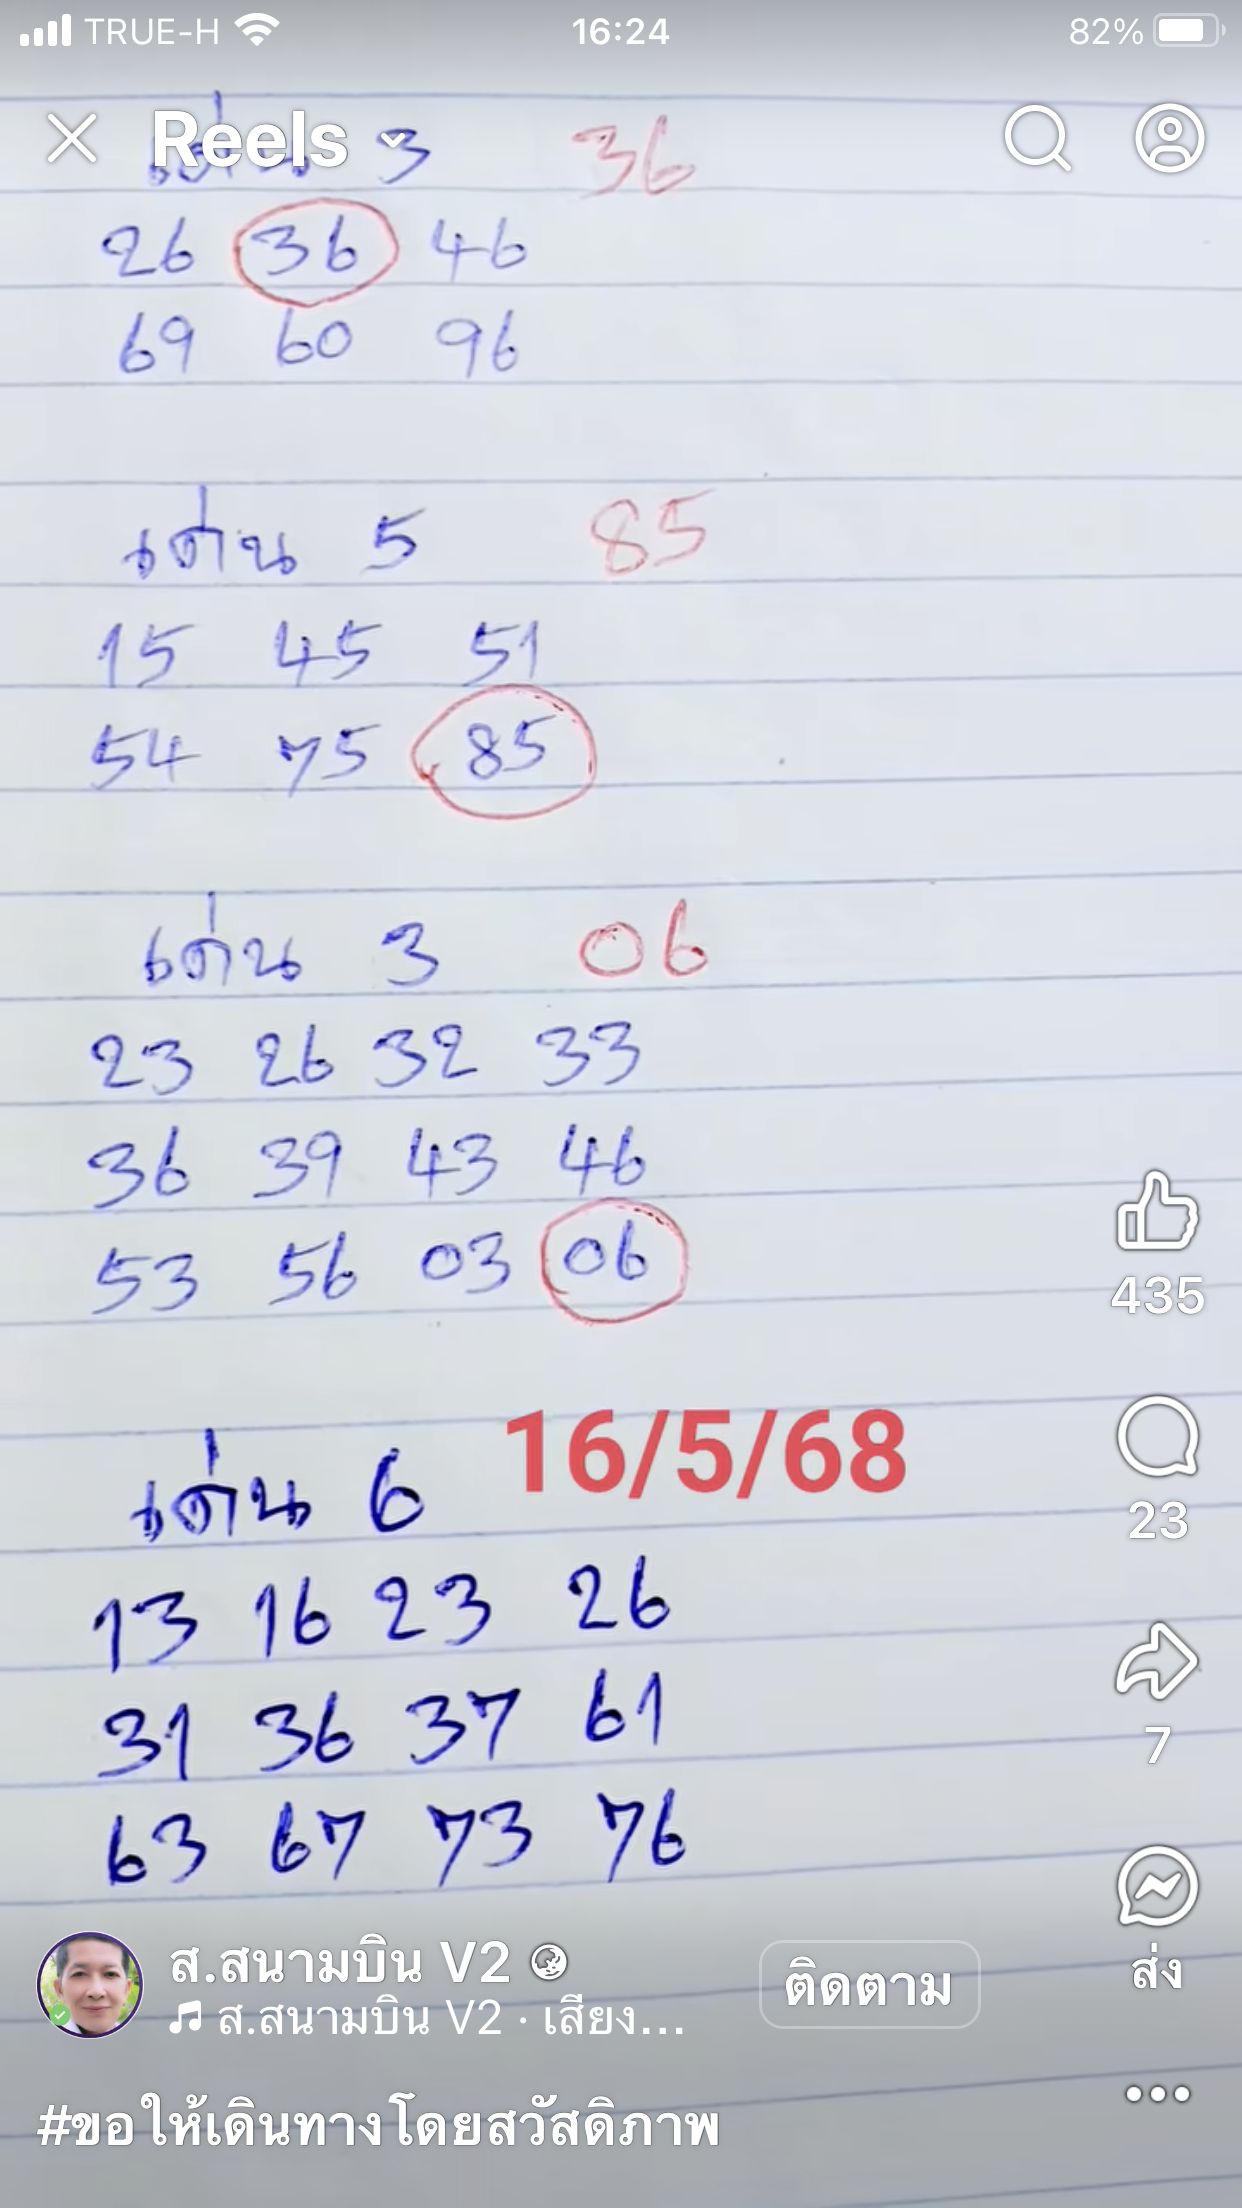 TRUE-H 16:24 82%
Reels
เด่น 3 36
26 36 46
69 60 96
เด่น 5 85
15 45 51
54 75 85
เด่น 3 06
23 26 32 33
36 39 43 46
53 56 03 06
435
เด่น 6 16/5/68
23
13 16 23 26
31 36 37 61
7
63 67 73 76
ส.สนามบิน V2
ติดตาม
ส่ง
ส.สนามบิน V2 · เสียง...
#ขอให้เดินทางโดยสวัสดิภาพ